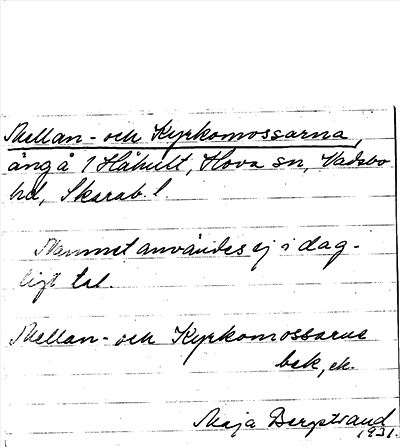 Mellan- och Kyrkomossarna,
äng å 1 Håhult, Hova sn, Vadsbo
hd, Skarab. l.
Namnet användes ej i dag-
ligt tal.
Mellan- och Kyrkomossarna
bek, ek.
Maja Bergstrand
1931.